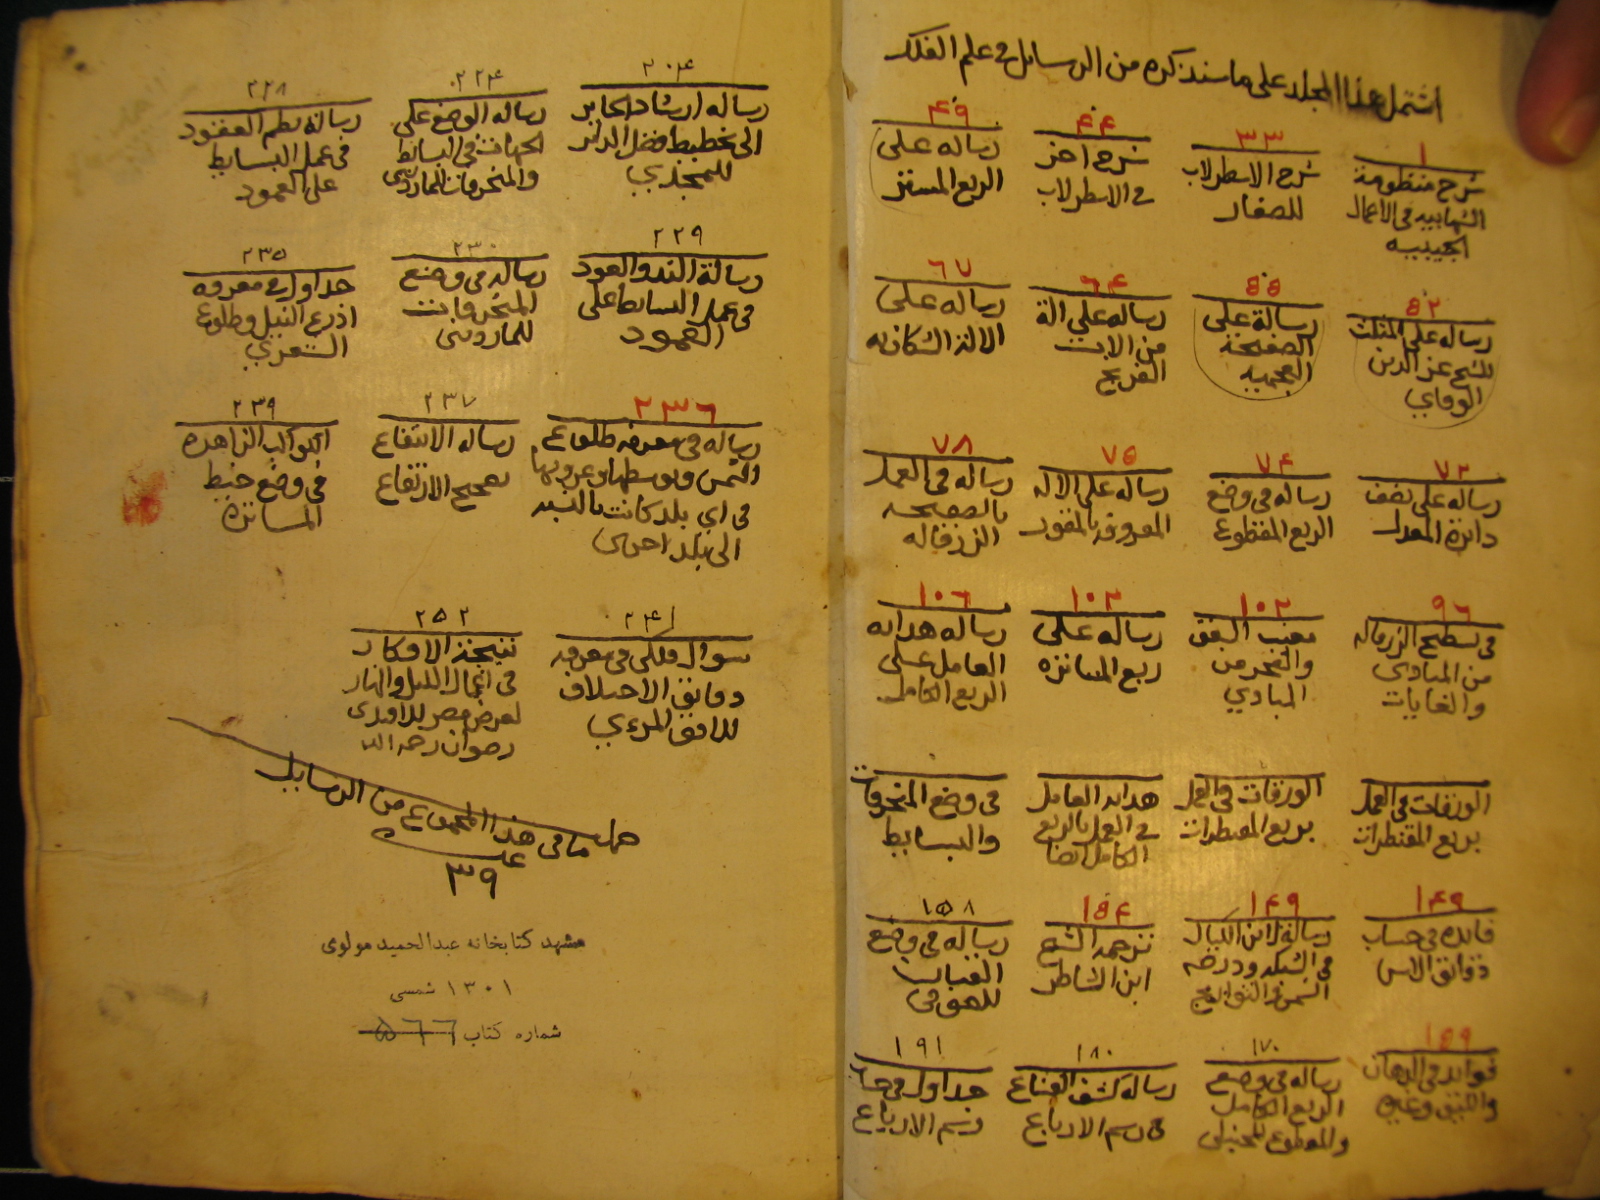 اشتمل هذا المجلد على ما سنذكره من الرسائل في علم الفلك
١
شرح منظومة
الشهابيه في الاعمال
الجيبيه
٣٣
شرح الاسطرلاب
للصفار
۴۴
شرح اخر
في الاسطرلاب
۴۹
رساله على
الربع المستتر
۵۲
رساله على المثلث
للشيخ عز الدين
الوفاي
۵۵
رسالة على
الصفيحة
العجميه
٦۴
رساله على الة
من الات
الفرنج
٦٧
رساله على
الالة الشكازيه
٧٢
رساله على نصف
دائرة المعدل
٧۴
رساله في وضع
الربع المقطوع
٧۵
رساله على الاله
المعروفه بالمقور
٧٨
رساله في العمل
بالصفيحه
الزرقاله
٩٦
في تسطيح الزرقاله
من المبادى
والغايات
١٠٢
مغيب الشفق
والفجر من
المبادي
١٠٣
رساله على
ربع المساتره
١٠٦
رساله هدايه
العامل على
الربع الكامل
الورقات في العمل
بربع المقنطرات
الورقات في العمل
بربع المقنطرات
هدايه العامل
في العمل بالربع
الكامل ايضا
في وضع المنحرفات
والبسايط
١۴٩
فائده في حساب
دقائق الاس
١۴٩
رسالة لابن الكيال
في الشبكه ودرجه
١۵۴
ترجمه الشيخ
ابن الشاطر
١۵٨
رساله في وضع
القباب
للصوفي
١۵٩
فوايد في الدهان
والليق وغيره
١٧٠
رساله في وضع
الربع الكامل
والمقطوع للحنبلي
١٨٠
رساله كشف القناع
في رسم الارباع
١٩١
جداول في حساب
رسم الارباع
٢٠۴
رساله ارشاد الحاير
الى تخطيط فضل الداير
للمجدي
٢٢۴
رساله الوضع على
الجهات في البسائط
والمنحرفات للماردينى
٢٢٨
رسالة نظم العقود
في عمل البسايط
على العمود
٢٢٩
رسالة الند والعود
في عمل البسائط على
العمود
٢٣٠
رساله في وضع
المنحرفات
للماردينى
٢٣۵
جداول في معرفه
اذرع النيل وطلوع
الشعري
٢٣٦
رساله في معرفه طلوع
الشمس وتوسطها وغروبها
في اي بلد كانت بالنسبه
الى بلد اخرى
٢٣٧
رساله الانتفاع
بصحيح الارتفاع
٢٣٩
الكواكب الزاهره
في وضع خيط
المساتره
٢۴١
سوال فلكي في معرفه
دقائق الاختلاف
للافق المرءي
٢۵٢
نتيجة الافكار
في اعمال الليل والنهار
لعرض مصر للافندى
رضوان رحمه الله
جملة ما في هذا المجموع من الرسايل
عد
٣٩
مشهد كتابخانه عبدالحميد مولوى
١٣٠١ شمسى
شماره كتاب ۵٦٦